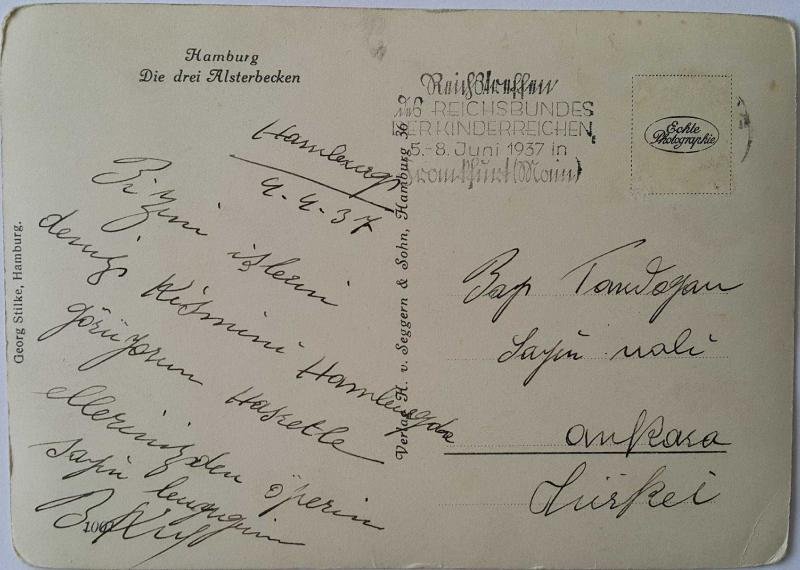 Hamburg
Die drei Alsterbecken
Reichstreffen
des REICHSBUNDES
DER KINDERREICHEN
5.-8. Juni 1937 in
Frankfurt (Main)
Echte
Photographie
Hamburg
9-4-37
Bizim işlerin
deniz kısmını Hamburgda
görüyorum Hasretle
ellerinizden öperim
sayın
Bay Tandoğan
Sayın vali
ankara
Türkei
Georg Stilke, Hamburg.
Verlag H. v. Seggern & Sohn, Hamburg 36